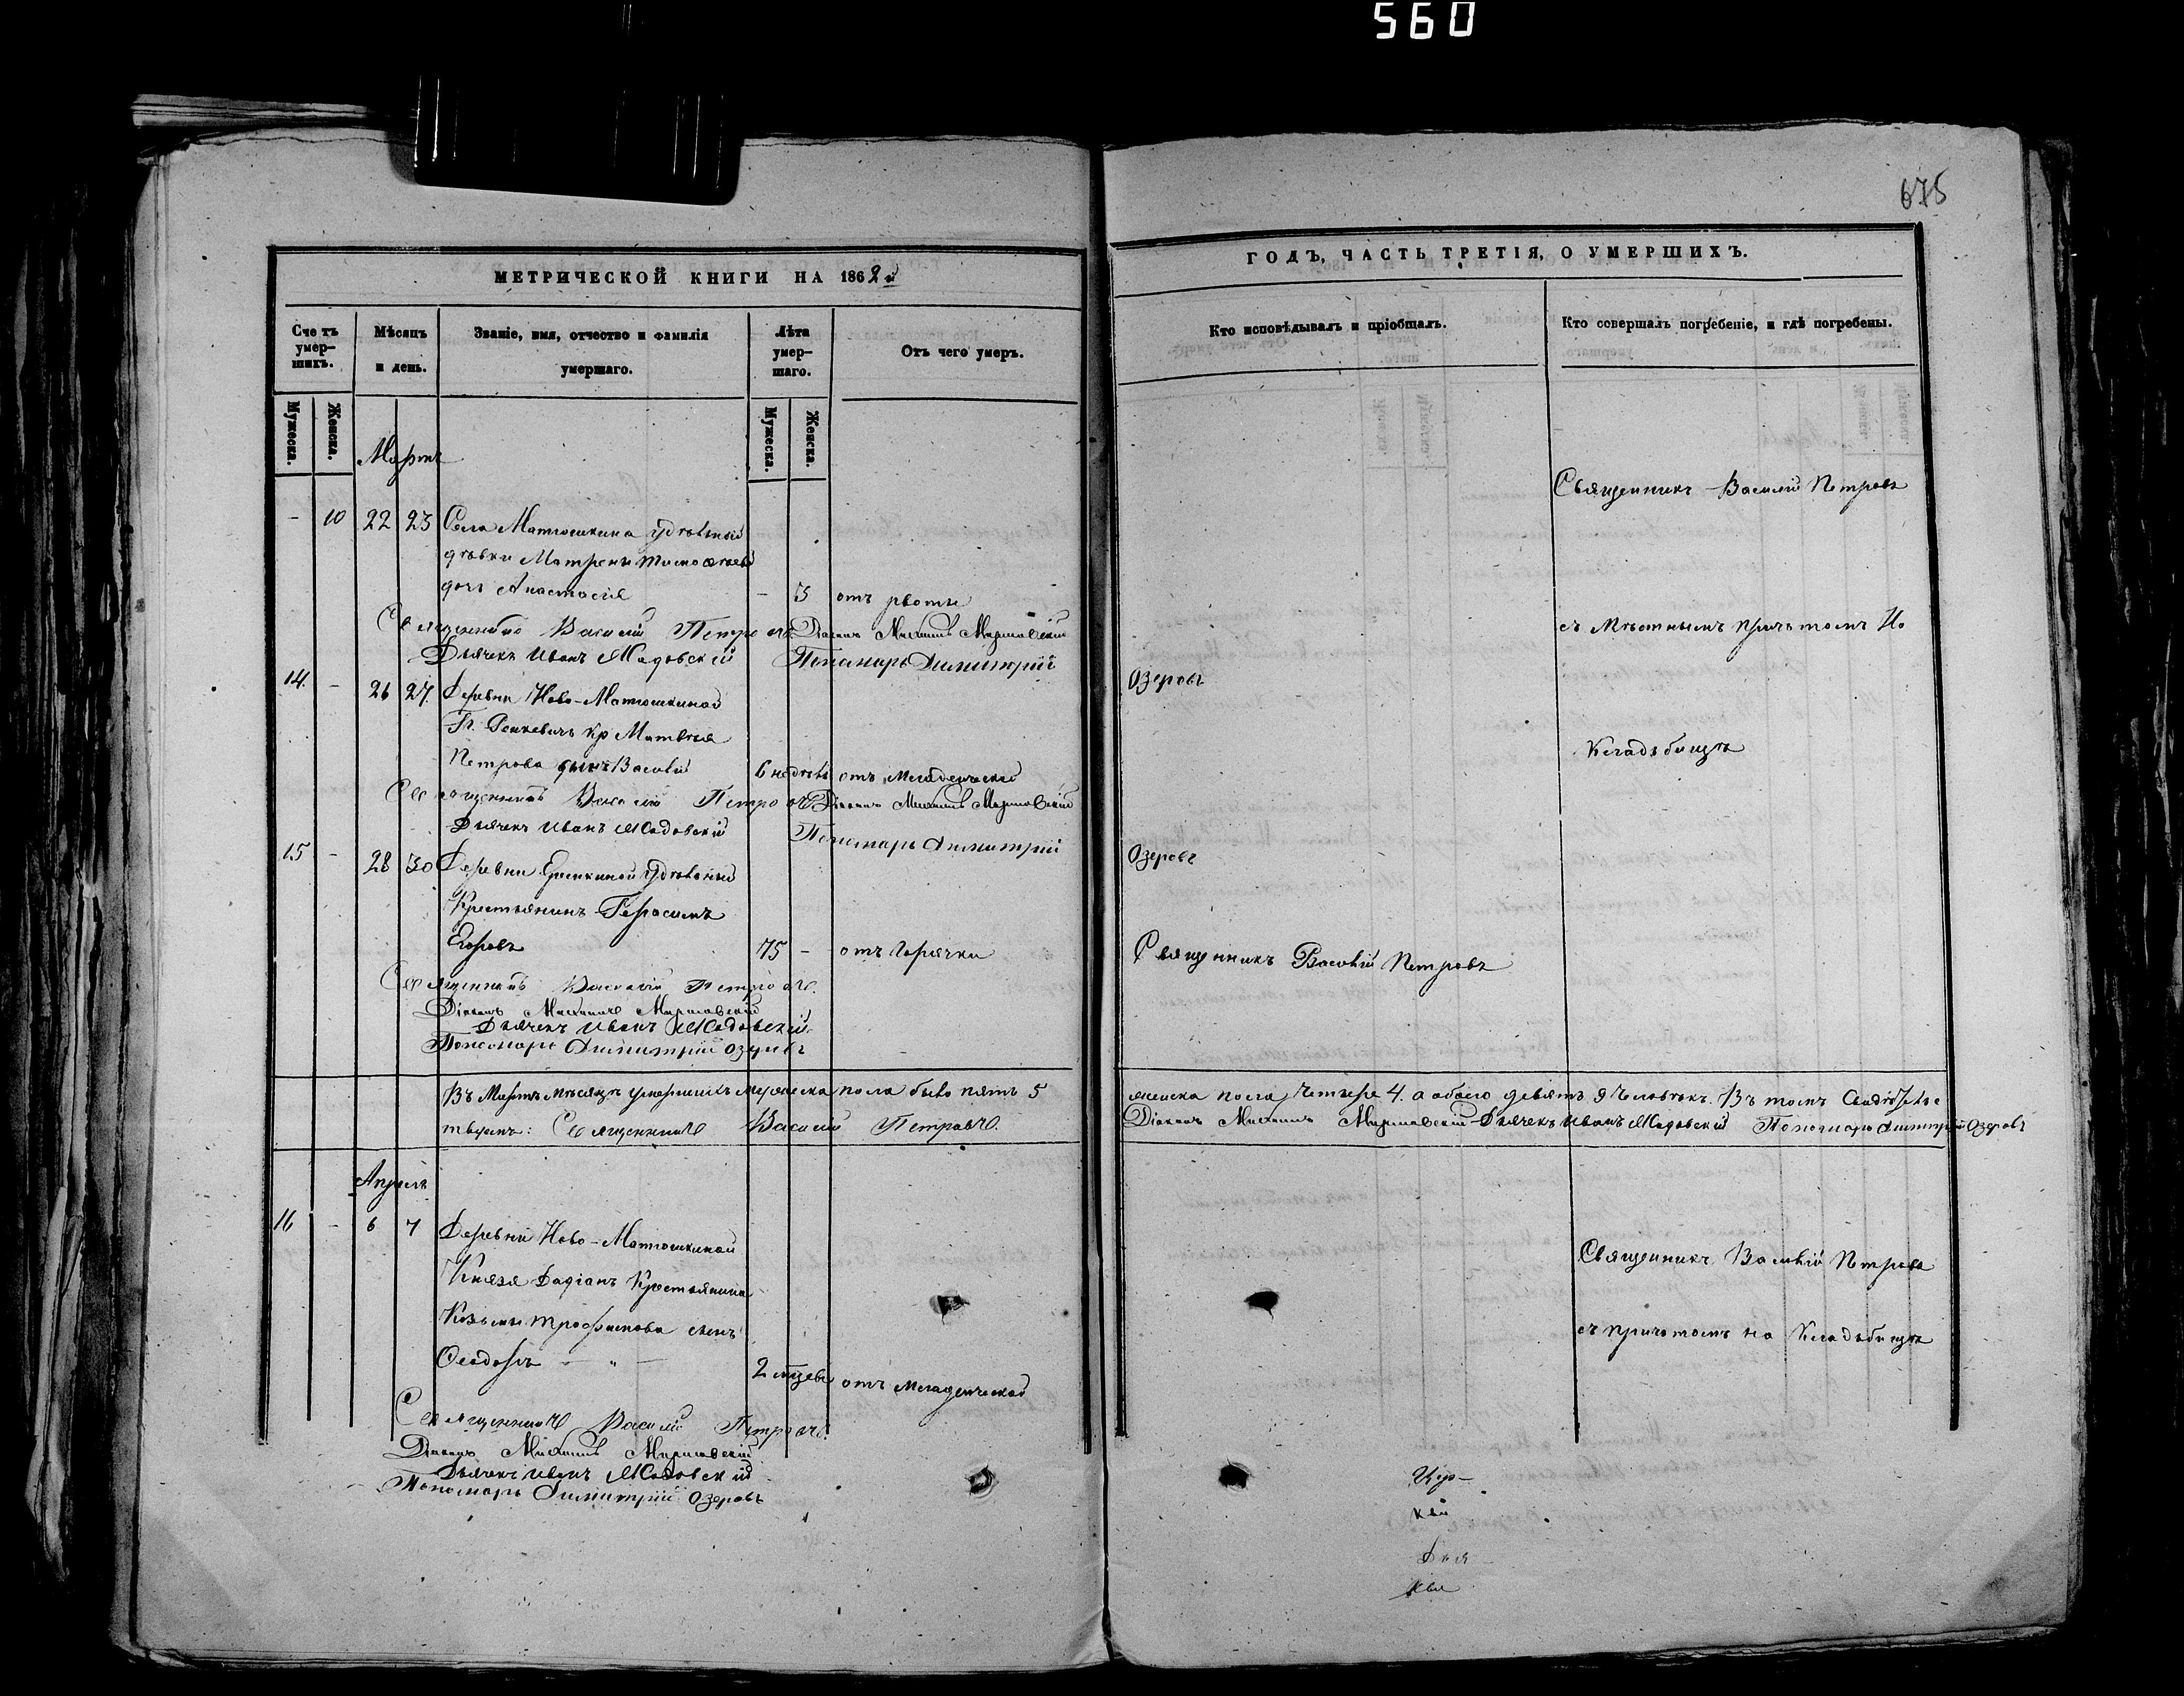 560
675
МЕТРИЧЕСКОЙ КНИГИ НА 1862й
ГОДЪ, ЧАСТЬ ТРЕТІЯ, О УМЕРШИХЪ.
Сче тъ умер-шихъ.
Мужеска.
Женска.
Мѣсяцъ и день.
Званіе, имя, отчество и фамилія умершаго.
Лѣта умер-шаго.
Мужеска.
Женска.
Отъ чего умеръ.
Кто исповѣдывалъ и пріобщалъ.
Кто совершалъ погребеніе, и гдѣ погребены.
Мартъ
Священникъ Василій Петровъ
- 10 22 23 Села Матюшкина удѣльной
дѣвки Матрены
дочь Анастасія - 3 отъ рвоты
Священникъ Василій Петровъ Діаконъ Михаилъ
съ мѣстнымъ причтомъ На
Дьячекъ Иванъ Пономарь Димитрій Озеровъ
14. - 26 27. Деревни Ново-Матюшкиной
Кр Матвѣя
Петрова сынъ Василій 6 недѣль отъ младенческой
Кладбищѣ
Священникъ Василій Петровъ Діаконъ Михаилъ
Дьячекъ Иванъ Пономарь Димитрій Озеровъ
15 - 28 30 Деревни удѣльный
Крестьянинъ Герасимъ
Егоровъ 75 - отъ горячки Священникъ Василій Петровъ
Священникъ Василій Петровъ
Діаконъ Михаилъ
Дьячекъ Иванъ
Пономарь Димитрій Озеровъ
Въ Мартѣ мѣсяцѣ умершихъ мужеска пола было пять 5 женска пола четыре 4. а обоего девять 9 человѣкъ. Въ томъ свидѣтель-
Священникъ Василій Петровъ Діаконъ Михаилъ Дьячекъ Иванъ Пономарь Димитрій Озеровъ
Апрель
16 - 6 7 Деревни Ново-Матюшкиной
Князя Дадіанъ Крестьянина
Козьмы Трофимова сынъ
Ѳеодоръ - " - 2 отъ младенческой
Священникъ Василій Петровъ
съ причтомъ на Кладбищѣ
Священникъ Василій Петровъ
Діаконъ Михаилъ
Дьячекъ Иванъ
Пономарь Димитрій Озеровъ
Цер-
кви